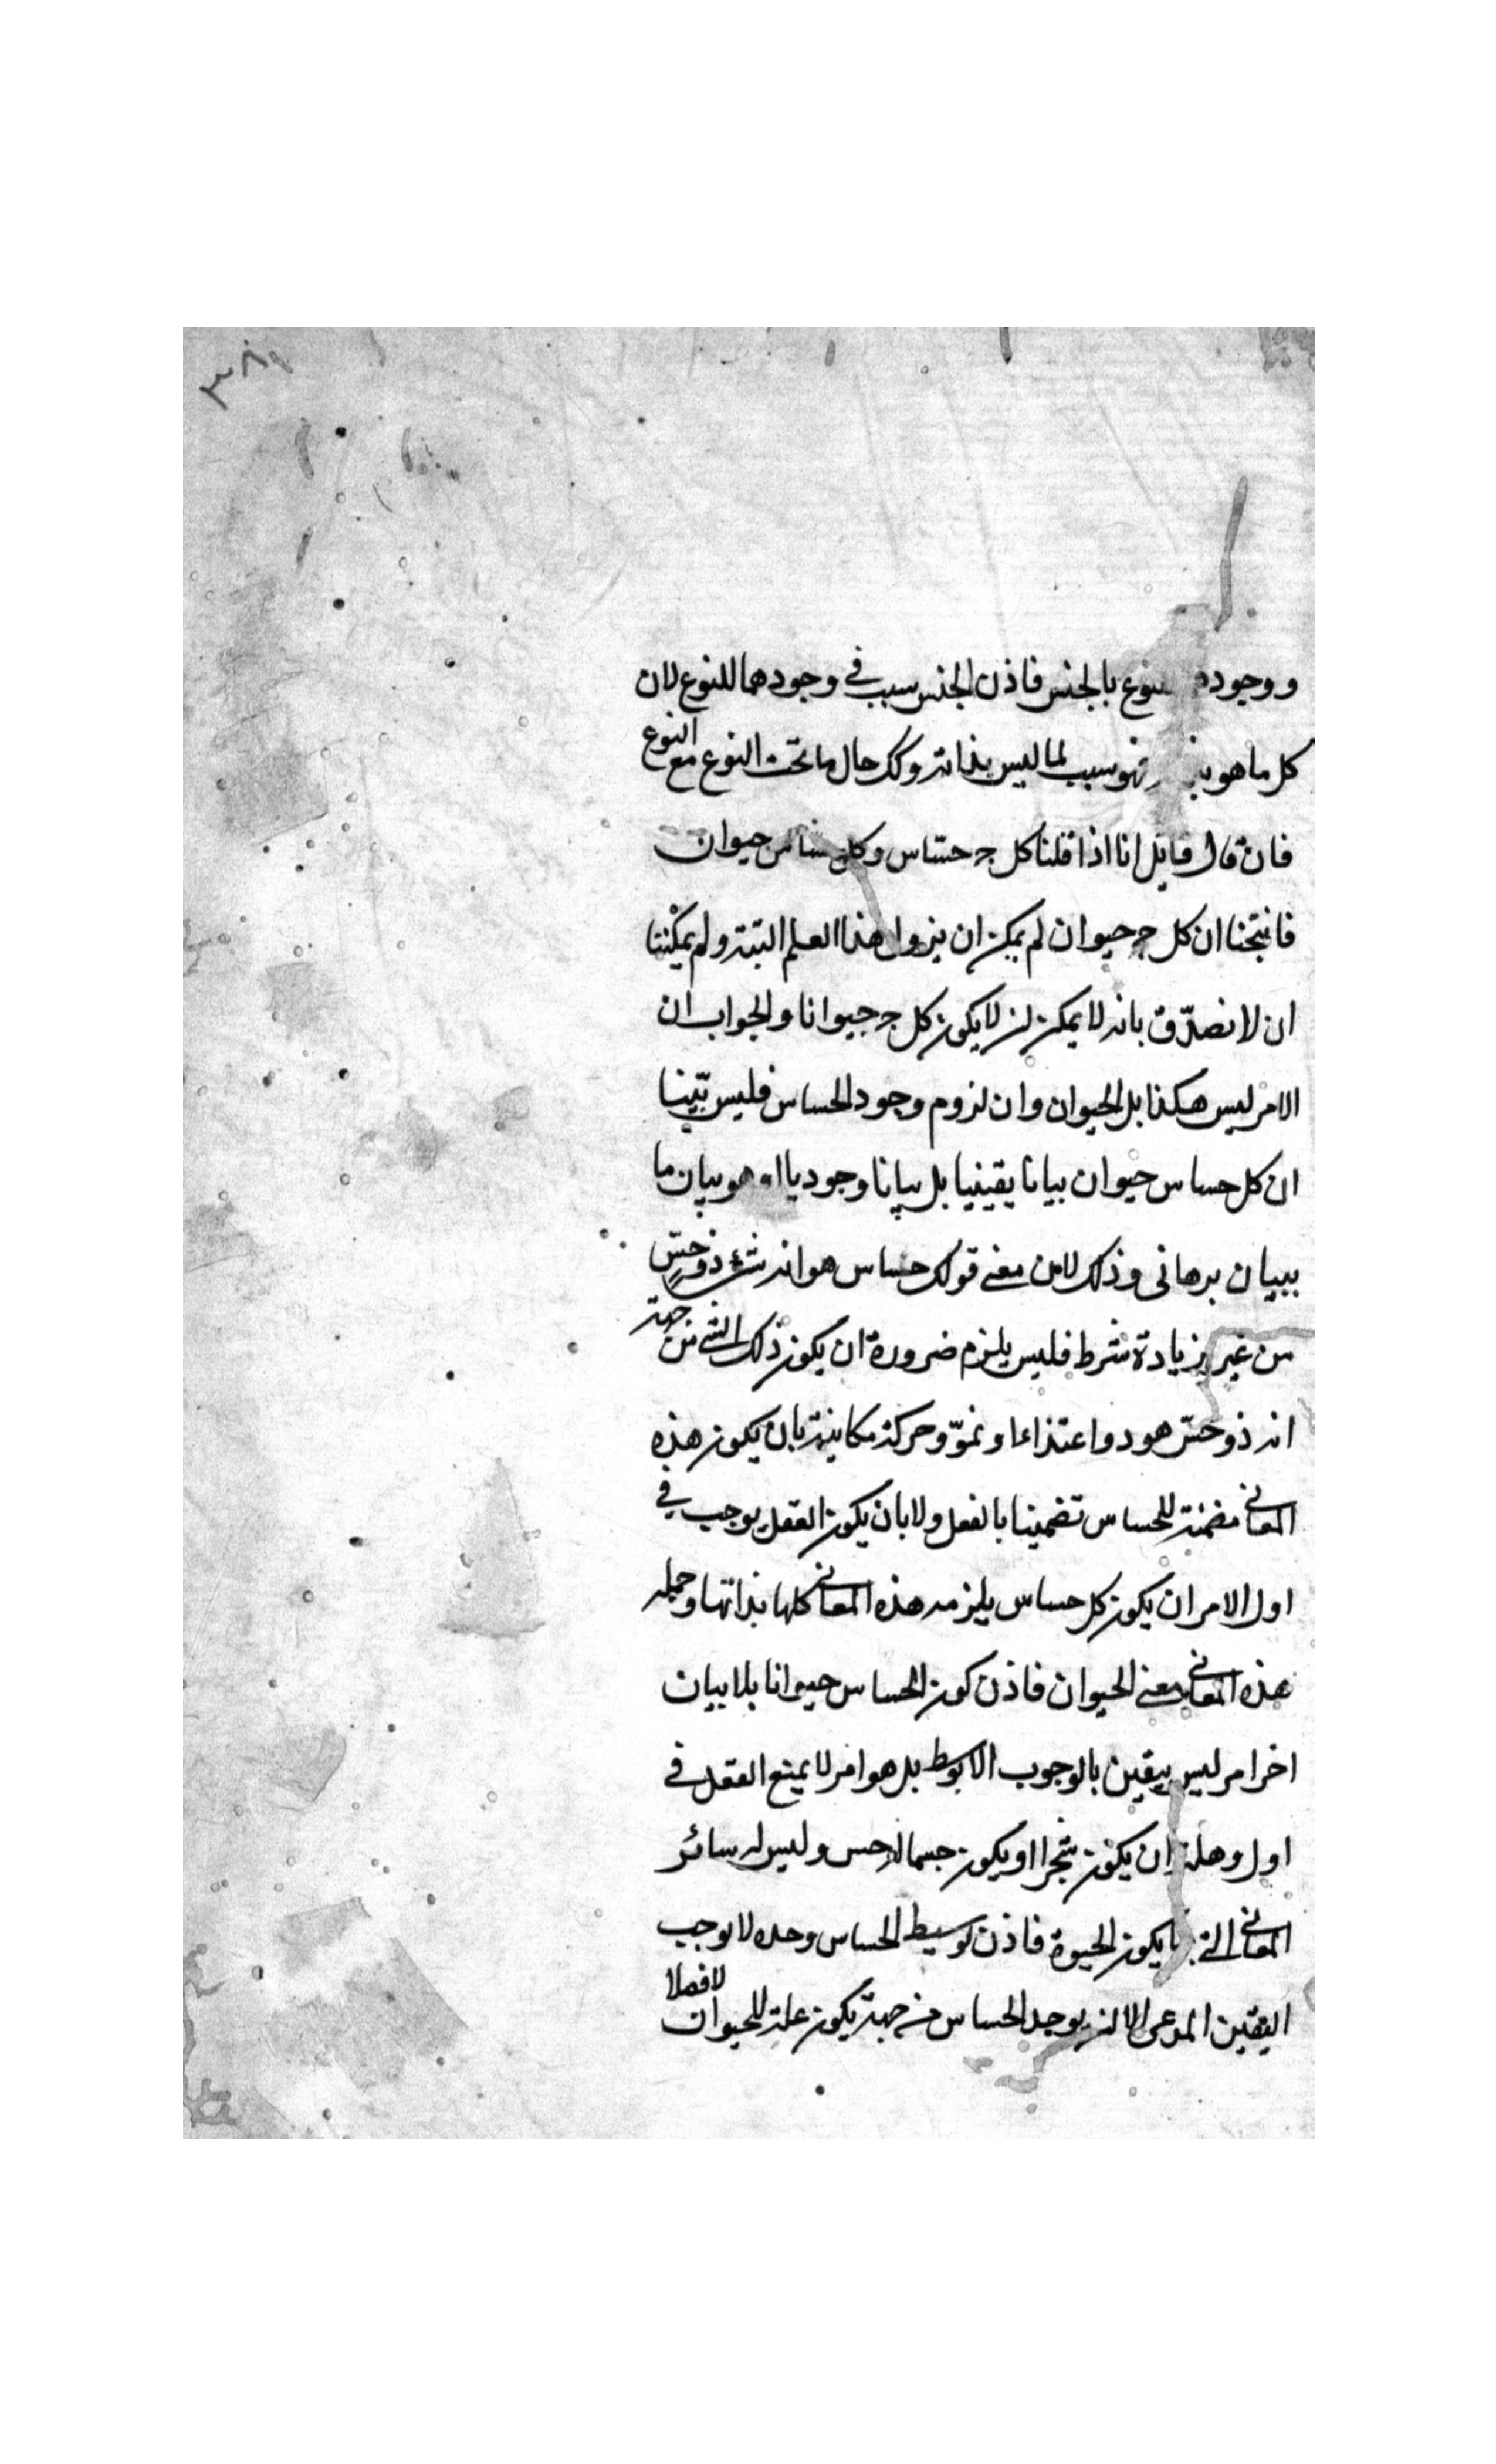 ٣٨٩
ووجوده للنوع بالجنس فاذن الجنس سبب في وجودهما للنوع لان
كل ما هو فهو سبب لما ليس بذاته وكك حال ما تحت النوع مع النوع
فان قال قايل انا اذا قلنا كل ج حسّاس وكل حساس حيوان
فانتجنا ان كل ج حيوان لم يمكن ان يزول هذا العلم البتة ولم يمكننا
ان لا نصدّق بانه لا يمكن ان لا يكون كل ج حيوانا والجواب ان
الامر ليس هكذا بل الحيوان وان لزوم وجود الحساس فليس بيّنا
ان كل حساس حيوان بيانا يقينيا بل بيانا وجوديا هو بيان ما
ببيان برهاني وذلك لان معنى قولك حساس هو انه شئ ذو حسّ
من غير زيادة شرط فليس يلزم ضرورة ان يكون ذلك الشئ من جهة
انه ذو حسّ هو ذو اغتذاء ونموّ وحركة مكانية بان يكون هذه
المعانى مضمنة للحساس تضمينا بالفعل ولا بان يكون العقل يوجب في
اول الامر ان يكون كل حساس يلزمه هذه المعانى كلها بذاتها وجملة
هذه المعانى معنى الحيوان فاذن كون الحساس حيوانا بلا بيان
اخر امر ليس بيقين بالوجوب الا بوسط بل هو امر لا يمنع العقل في
اول وهلة ان يكون شجرا او يكون جسما له حس وليس له سائر
المعانى التى بها يكون الحيوة فاذن توسيط الحساس وحده لا يوجب
اليقين المدعى الا ان يوجد الحساس من جهة يكون علة للحيوان لا فصلا